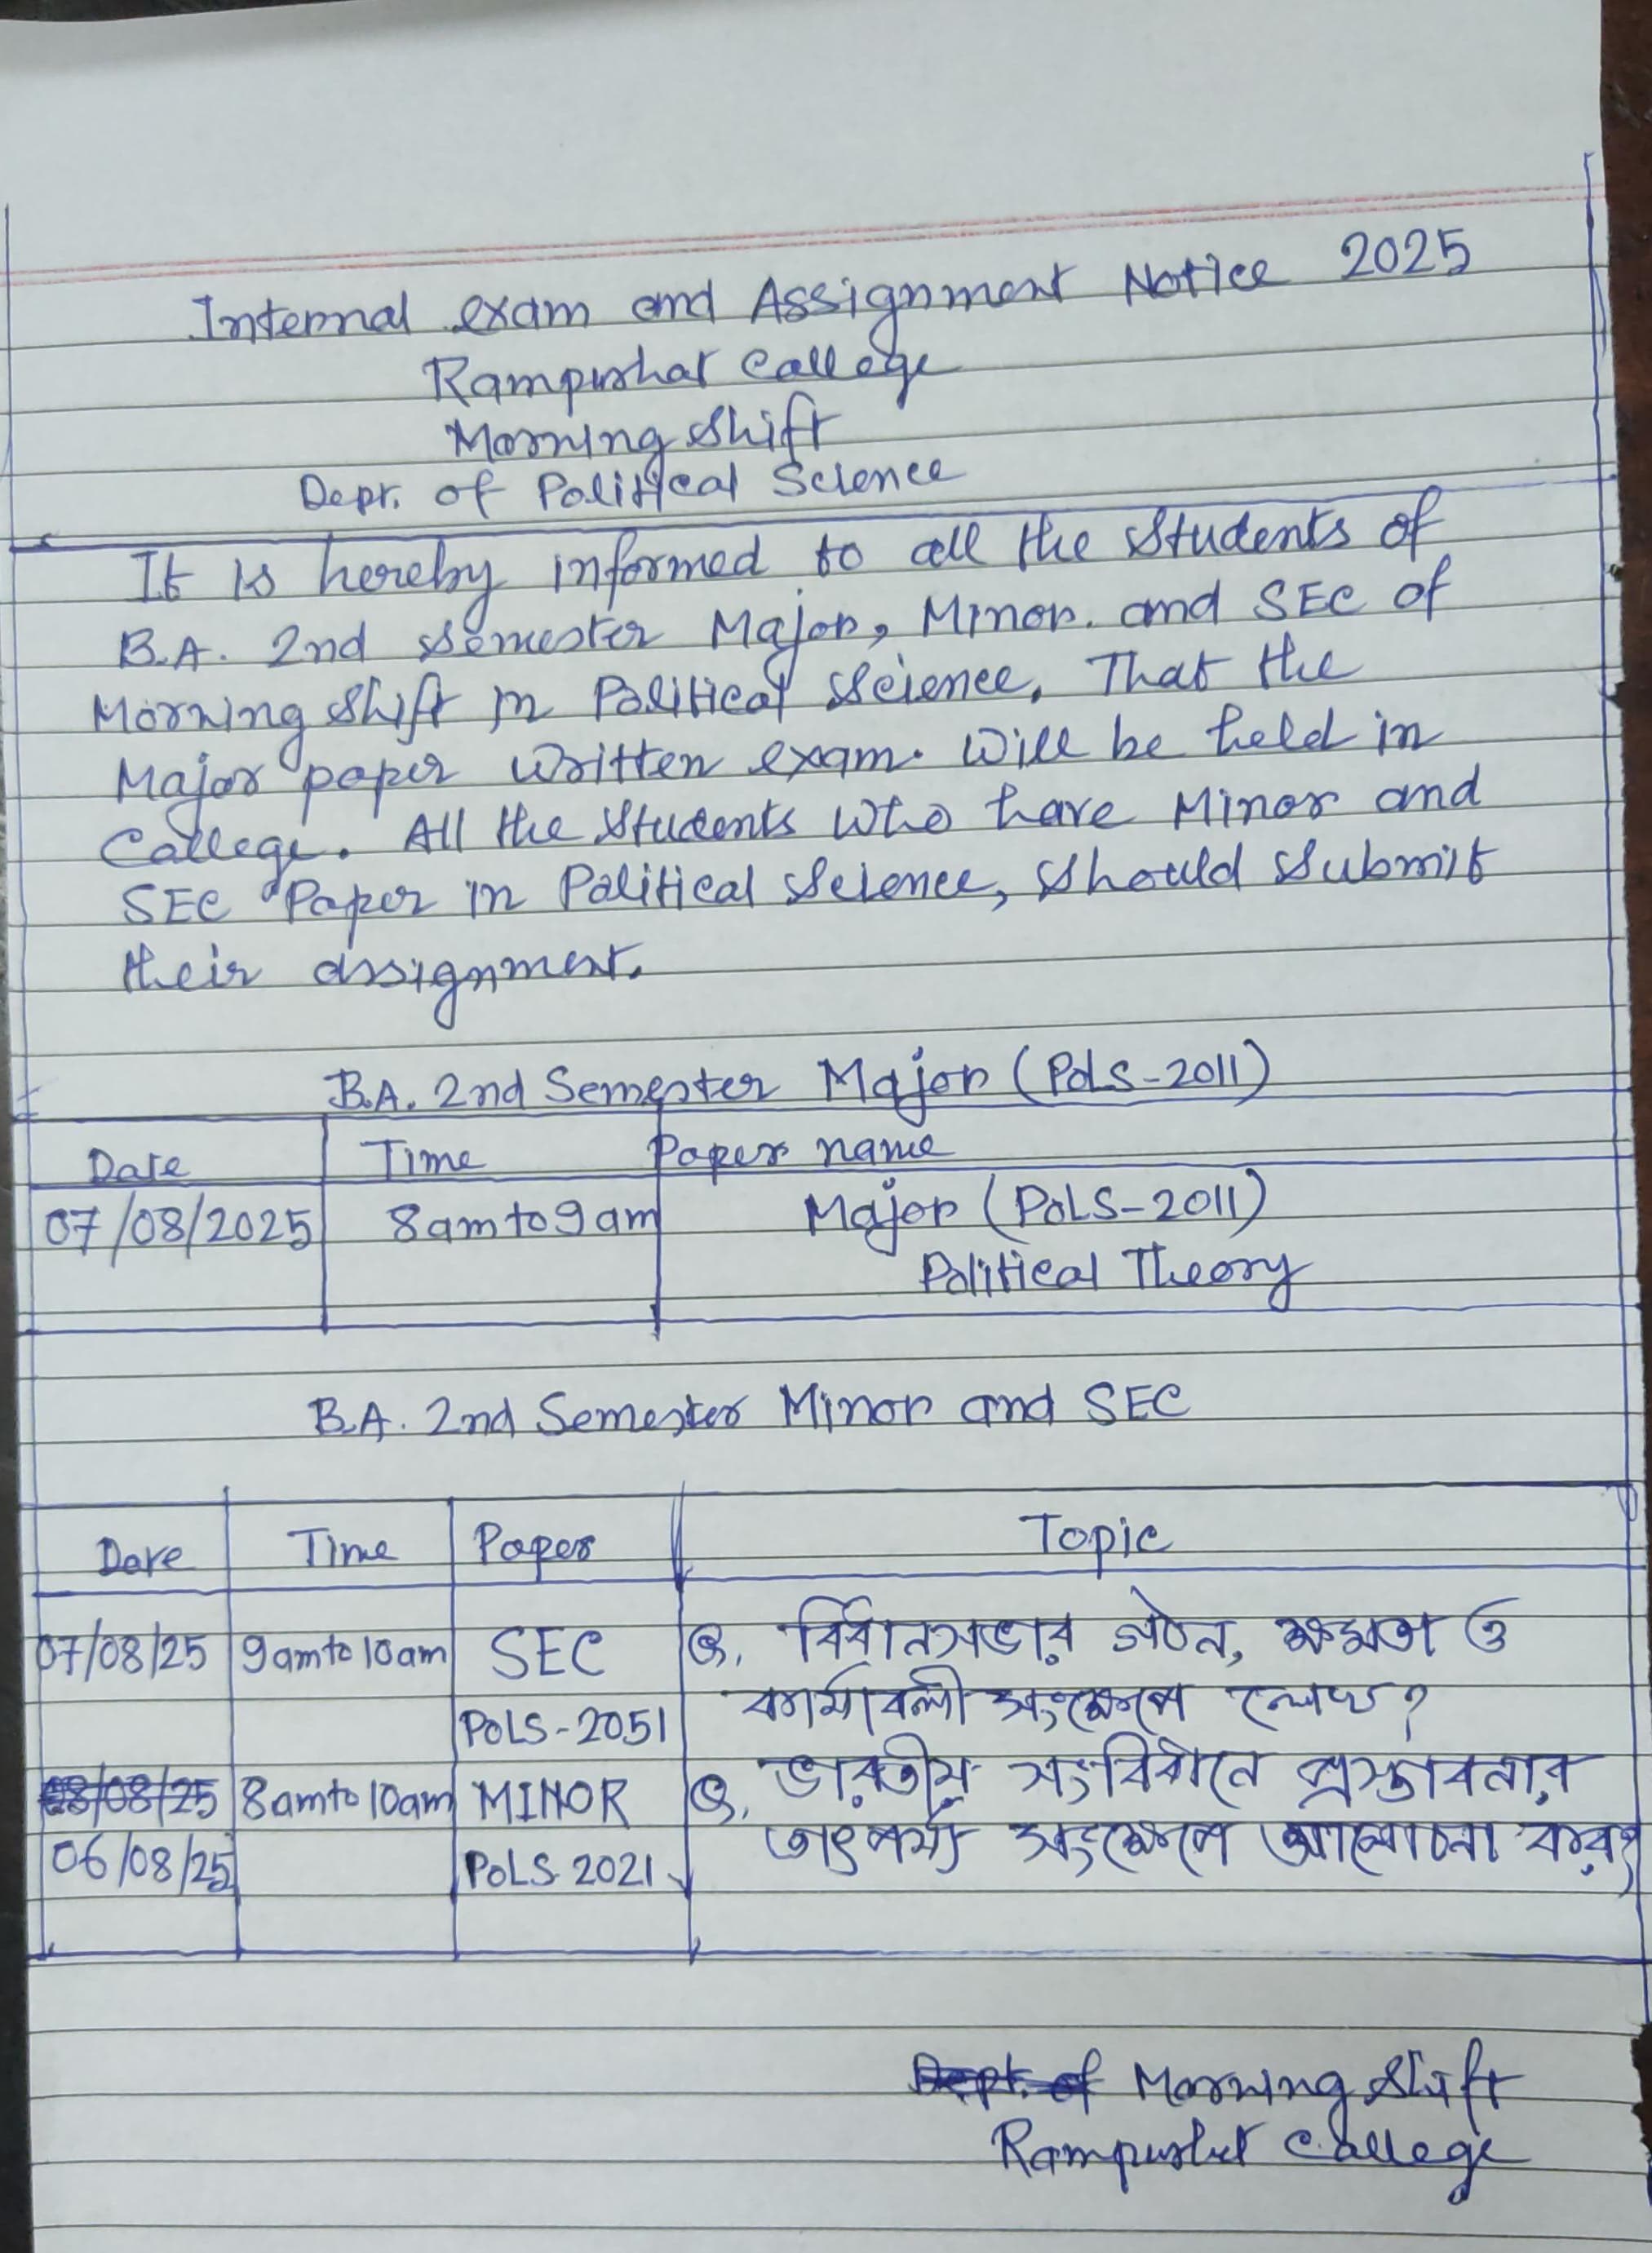 Internal exam and Assignment Notice 2025
Rampurhat College
Morning Shift
Dept. of Political Science
It is hereby informed to all the Students of
B.A. 2nd Semester Major, Minor. and SEC of
Morning Shift in Political Science, That the
Major paper written exam. Will be held in
College. All the Students who have Minor and
SEC Paper in Political Science, Should Submit
their assignment.
B.A. 2nd Semester Major (PolS-2011)
Date Time Paper name
07/08/2025 8am to 9am Major (PolS-2011)
Political Theory
B.A. 2nd Semester Minor and SEC
Date Time Paper Topic
07/08/25 9am to 10am SEC প্র. বিধানসভার গঠন, ক্ষমতা ও
PolS-2051 কার্যাবলী সংক্ষেপে লেখ?
08/08/25 8am to 10am MINOR প্র. ভারতীয় সংবিধানে প্রস্তাবনার
06/08/25 PolS 2021 তাৎপর্য সংক্ষেপে আলোচনা কর?
Dept. of Morning Shift
Rampurhat College